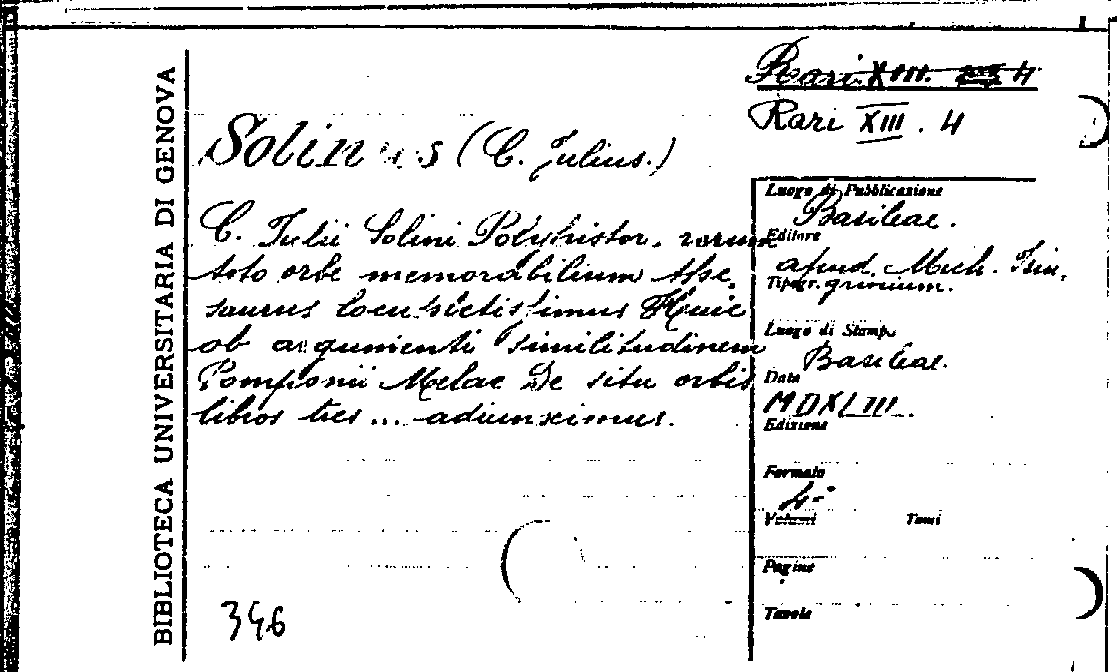 BIBLIOTECA UNIVERSITARIA DI GENOVA
Rari XIII. 4
Rari XIII. 4
Solinus (C. Julius.)
C. Julii Solini Polyhistor, rerum
toto orbe memorabilium the-
saurus locupletissimus Huic
ob argumenti similitudinem
Pomponii Melae De situ orbis
libros tres ... adiunximus.
346
Luogo di Pubblicazione
Basileae.
Editore
apud Mich. Isin,
Tipogr. grinium.
Luogo di Stampa
Basileae.
Data
MDXLIII.
Edizione
Formato
4°
Volumi Tomi
Pagine
Tavole